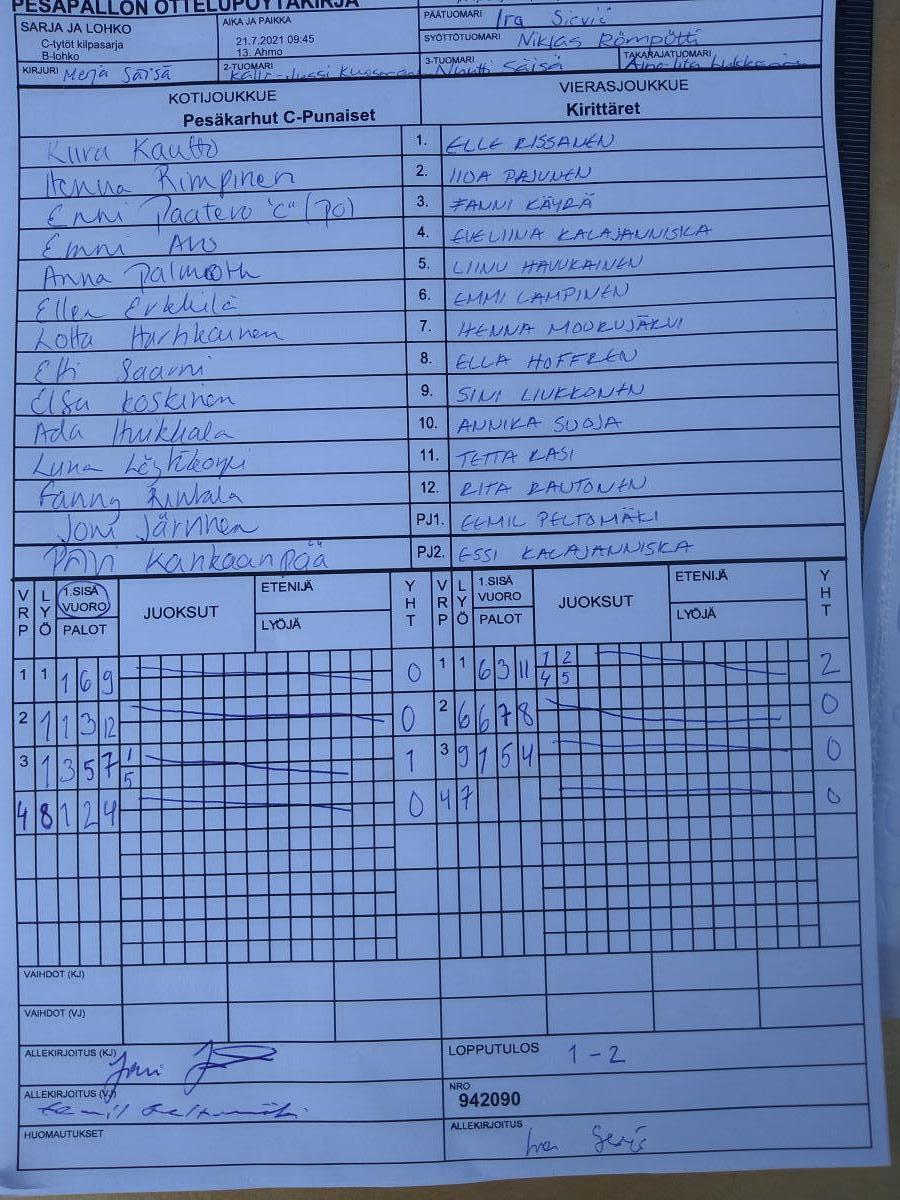 PESÄPALLON OTTELUPÖYTÄKIRJA
SARJA JA LOHKO
C-tytöt kilpasarja
B-lohko
AIKA JA PAIKKA
21.7.2021 09:45
13. Ahmo
PÄÄTUOMARI Ira
SYÖTTÖTUOMARI Niklas Römpötti
KIRJURI Merja Säisä
2-TUOMARI
3-TUOMARI Säisä
TAKARAJATUOMARI
KOTIJOUKKUE
Pesäkarhut C-Punaiset
VIERASJOUKKUE
Kirittäret
Kiira Kautto 1. ELLE RISSANEN
Henna Rimpinen 2. IIDA PAJUNEN
Enni Paatero "C" (PO) 3. FANNI KÄYRÄ
Emmi Avo 4. EVELIINA KALAJANNISKA
Anna Palmroth 5. LIINU HAVUKAINEN
Ellen Erkkilä 6. EMMI LAMPINEN
Lotta Hartikainen 7. HENNA MOURUJÄRVI
Elli Saarni 8. ELLA HOFFREN
Elsa Koskinen 9. SINI LIUKKONEN
Ada Huikkala 10. ANNIKA SUOJA
Luna 11. TETTA KASI
Fanny Rintala 12. RITA RAUTONEN
Joni Järvinen PJ1. EEMIL PELTOMÄKI
Päivi Kankaanpää PJ2. ESSI KALAJANNISKA
VRP LYÖ 1.SISÄ VUORO PALOT JUOKSUT ETENIJÄ LYÖJÄ YHT VRP LYÖ 1.SISÄ VUORO PALOT JUOKSUT ETENIJÄ LYÖJÄ YHT
1 1 1 6 9 0 1 1 6 3 11 1 2 4 5 2
2 1 1 3 12 0 2 6 6 7 8 0
3 1 3 5 7 1 5 1 3 9 1 5 4 0
4 8 1 2 4 0 4 7 0
VAIHDOT (KJ)
VAIHDOT (VJ)
ALLEKIRJOITUS (KJ) Joni
LOPPUTULOS 1-2
ALLEKIRJOITUS (VJ) Eemil Peltomäki
NRO
942090
HUOMAUTUKSET
ALLEKIRJOITUS